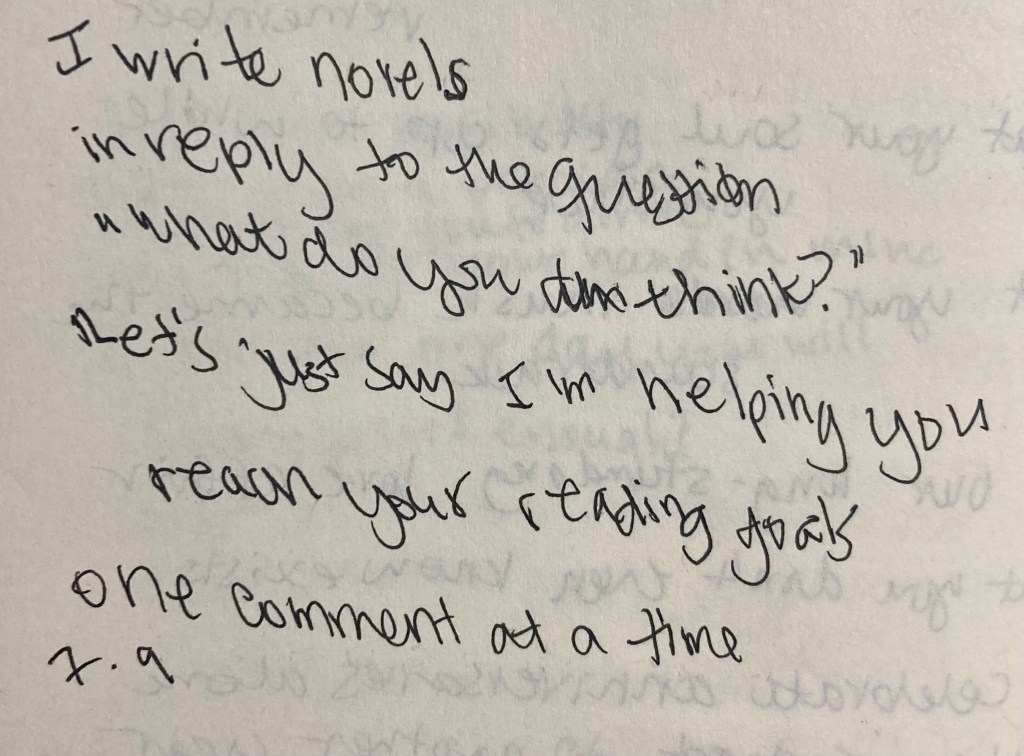 I write novels
in reply to the question
"what do you think?"
Let's just say I'm helping you
reach your reading goals
one comment at a time
7.9